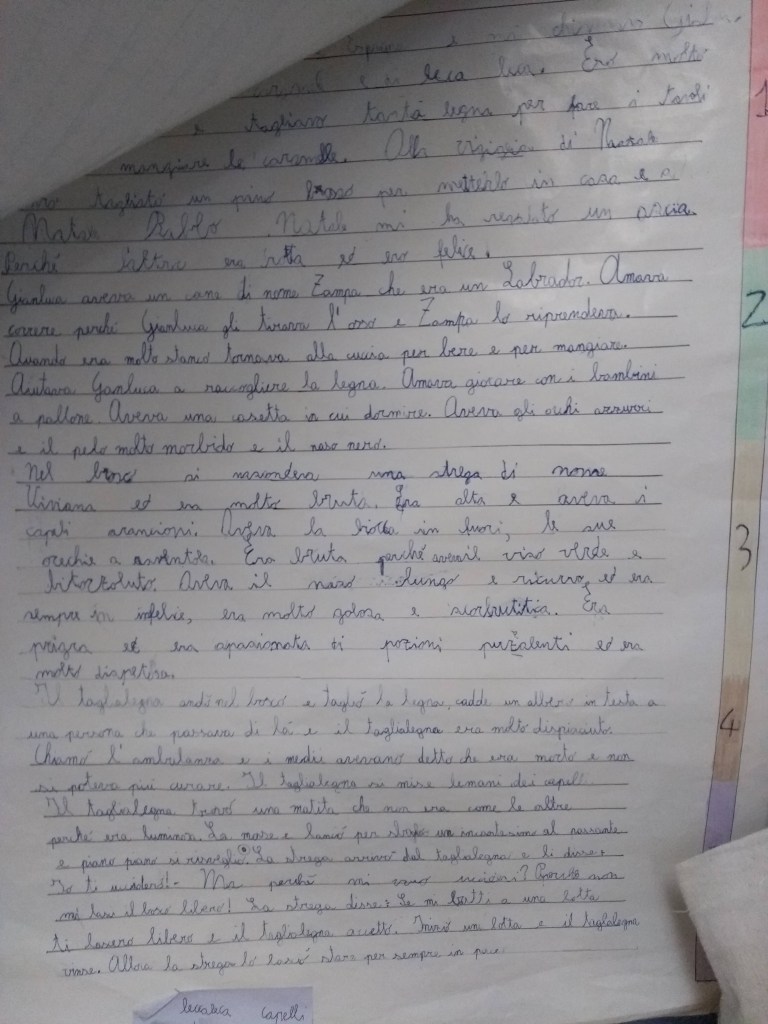 e mi chiamano
e di leca leca. Ero molto
e tagliavo tanta legna per fare i tavoli
mangiare le caramelle. Alla vigiglia di Natale
tagliato un pino per metterlo in casa e a
Natale Natale mi ha regalato un
Perché era ed ero felice.
Gianluca aveva un cane di nome Zampa che era un Labrador. Amava
correre perché Gianluca gli tirava l'osso e Zampa lo riprendeva.
Quando era molto stanco tornava alla cuccia per bere e per mangiare.
Aiutava Gianluca a raccogliere la legna. Amava giocare con i bambini
a pallone. Aveva una casetta in cui dormire. Aveva gli occhi azzurri
e il pelo molto morbido e il naso nero.
Nel bosco si nascondeva una strega di nome
Viviana ed era molto bruta. Era alta e aveva i
capeli arancioni. Aveva la in fuori, le sue
orechie a sventola. Era bruta perché aveva il viso verde e
bitorzoluto. Aveva il naso lungo e ricurvo, ed era
sempre infelice, era molto golosa e Era
pigra ed era apasionata di pozioni puzzolenti ed era
molto dispetosa.
Il taglialegna andò nel bosco e tagliò la legna, cadde un albero in testa a
una persona che passava di là e il taglialegna era molto dispiaciuto.
Chiamò l'ambulanza e i medici avevano detto che era morto e non
si poteva più curare. Il taglialegna si mise le mani dei capelli.
Il taglialegna trovò una matita che non era come le altre
perché era luminosa. La mosse e lanciò per sbaglio un incantesimo al passante
e piano piano si risvegliò. La strega arrivò dal taglialegna e li disse:
Io ti ucciderò!- Ma perché mi vuoi uccidere? Perché non
mi lasci il bosco libero! La strega disse: Se mi batti a una lotta
ti lascerò libero e il taglialegna accettò. Iniziò una lotta e il taglialegna
vinse. Allora la strega lo lasciò stare per sempre in pace.
1
2
3
4
leccalecca capelli